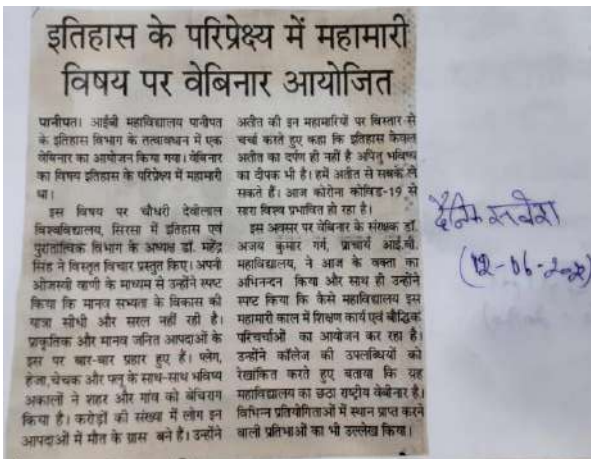 इतिहास के परिप्रेक्ष्य में महामारी
विषय पर वेबिनार आयोजित
पानीपत। आईबी महाविद्यालय पानीपत
के इतिहास विभाग के तत्वावधान में एक
वेबिनार का आयोजन किया गया। वेबिनार
का विषय इतिहास के परिप्रेक्ष्य में महामारी
था।
इस विषय पर चौधरी देवीलाल
विश्वविद्यालय, सिरसा में इतिहास एवं
पुरातात्विक विभाग के अध्यक्ष डॉ. महेंद्र
सिंह ने विस्तृत विचार प्रस्तुत किए। अपनी
ओजस्वी वाणी के माध्यम से उन्होंने स्पष्ट
किया कि मानव सभ्यता के विकास की
यात्रा सीधी और सरल नहीं रही है।
प्राकृतिक और मानव जनित आपदाओं के
इस पर बार-बार प्रहार हुए हैं। प्लेग,
हैजा,चेचक और फ्लू के साथ-साथ भविष्य
अकालों ने शहर और गांव को बेचिराग
किया है। करोड़ों की संख्या में लोग इन
आपदाओं में मौत के ग्रास बने है। उन्होंने
अतीत की इन महामारियों पर विस्तार से
चर्चा करते हुए कहा कि इतिहास केवल
अतीत का दर्पण ही नहीं है अपितु भविष्य
का दीपक भी है। हमें अतीत से सबक ले
सकते हैं। आज कोरोना कोविड-19 से
सारा विश्व प्रभावित हो रहा है।
इस अवसर पर वेबिनार के संरक्षक डॉ.
अजय कुमार गर्ग, प्राचार्य आई.बी.
महाविद्यालय, ने आज के वक्ता का
अभिनंदन किया और साथ ही उन्होंने
स्पष्ट किया कि कैसे महाविद्यालय इस
महामारी काल में शिक्षण कार्य एवं बौद्धिक
परिचर्चाओं का आयोजन कर रहा है।
उन्होंने कॉलेज की उपलब्धियों को
रेखांकित करते हुए बताया कि यह
महाविद्यालय का छठा राष्ट्रीय वेबीनार है।
विभिन्न प्रतियोगिताओं में स्थान प्राप्त करने
वाली प्रतिभाओं का भी उल्लेख किया।
दैनिक सवेरा